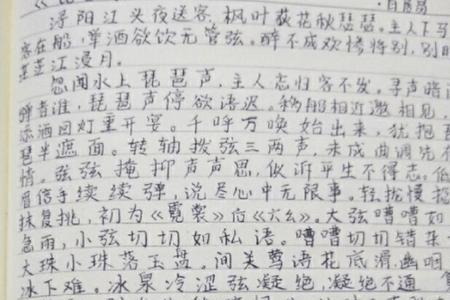 白居易
浔阳江头夜送客,枫叶荻花秋瑟瑟。主人下马
客在船,举酒欲饮无管弦。醉不成欢惨将别,别时
茫茫江浸月。
忽闻水上琵琶声,主人忘归客不发。寻声暗
弹者谁,琵琶声停欲语迟。移船相近邀相见,
添酒回灯重开宴。千呼万唤始出来,犹抱
琵半遮面。转轴拨弦三两声,未成曲调先
情。弦弦掩抑声声思,似诉平生不得志。低
眉信手续续弹,说尽心中无限事。轻拢慢捻
抹复挑,初为《霓裳》后《六幺》。大弦嘈嘈如
急雨,小弦切切如私语。嘈嘈切切错杂
大珠小珠落玉盘。间关莺语花底滑,幽咽
冰下难。冰泉冷涩弦凝绝,凝绝不通